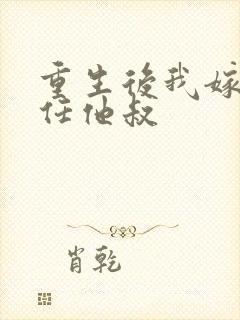 重生後我嫁
任他叔
肖乾